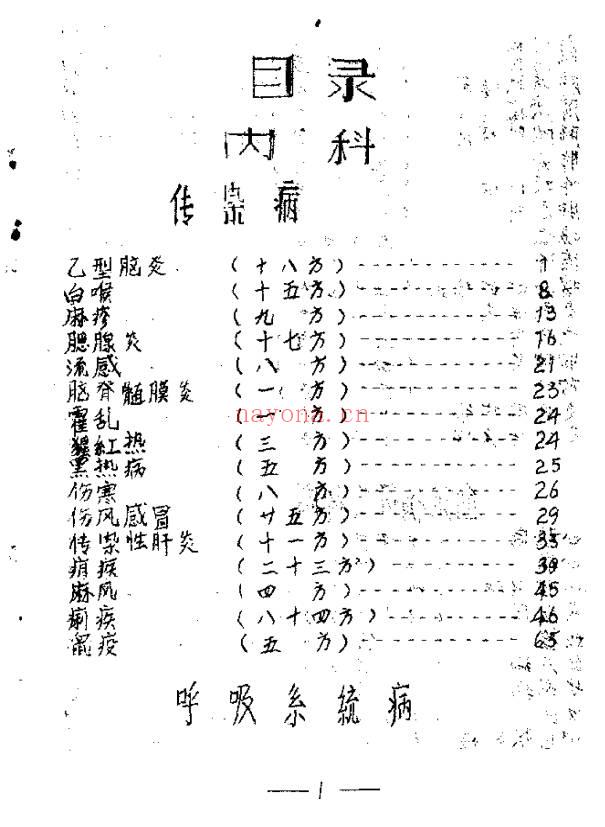 目录
内科
传染病
乙型脑炎 (十八方) 1
白喉 (十五方) 8
麻疹 (九方) 13
腮腺炎 (十七方) 16
流感 (八方) 21
脑脊髓膜炎 (一方) 23
霍乱 (一方) 24
猩紅热 (三方) 24
黑热病 (五方) 25
伤寒 (八方) 26
伤风感冒 (廿五方) 29
传染性肝炎 (十一方) 35
疾 (二十三方) 39
麻风 (四方) 45
痢疾 (八十四方) 46
鼠疫 (五方) 65
呼吸系統病
— 1 —
nayona.cn